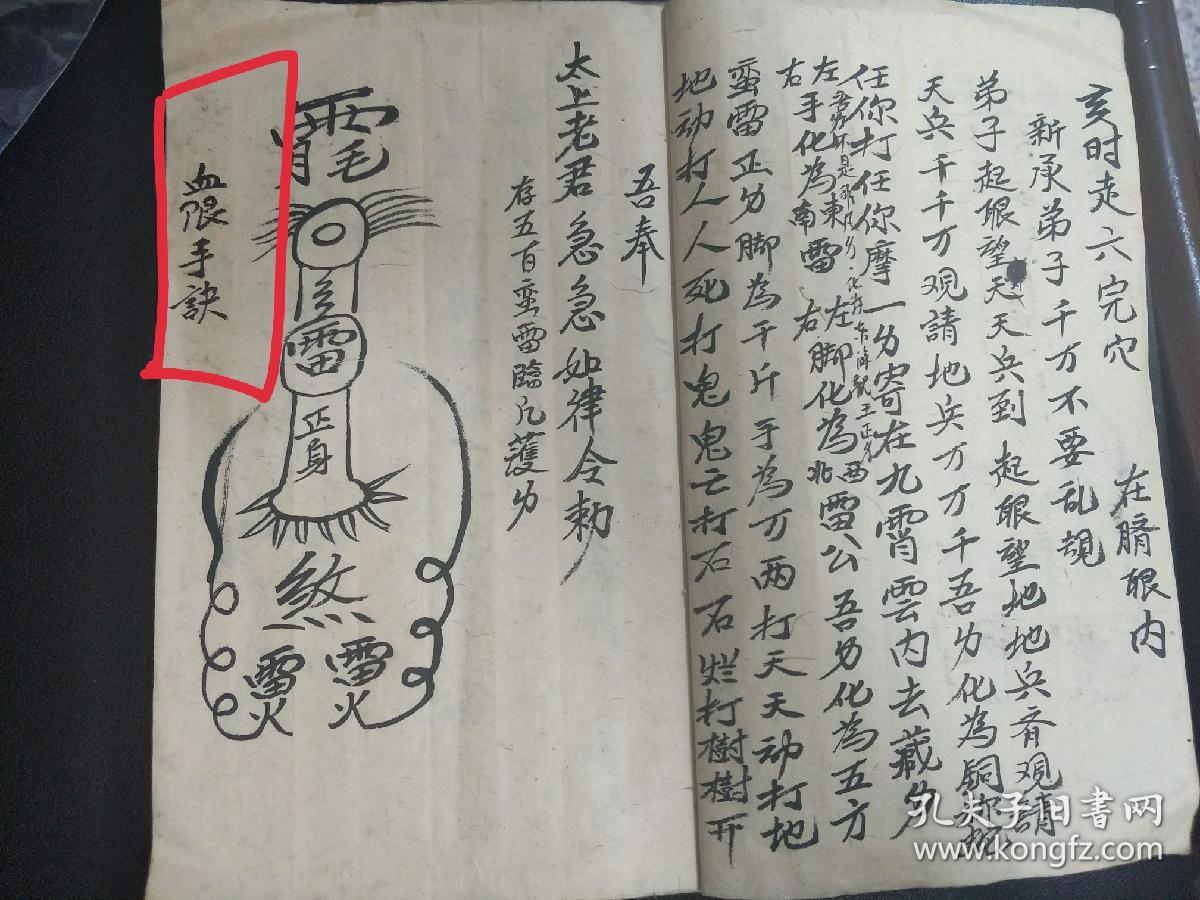 亥时走六完穴
在脐眼内
新承弟子千万不要乱
弟子起眼望天天兵到 起眼望地地兵齐观請
天兵千千万观請地兵万万千吾身化為銅
任你打任你摩一身寄在九霄雲内去藏身
左手化為東雷 左脚化為西雷公吾身化為五方
右手化為南雷 右脚化為北雷公吾身化為五方
蛮雷正身脚為千斤手為万两打天天动打地
地动打人人死打鬼鬼亡打石石烂打樹樹开
吾奉
太上老君急急如律令勅
存五百蛮雷臨凡護身
雷
正身
煞
血限手訣
孔夫子旧书网
www.kongfz.com